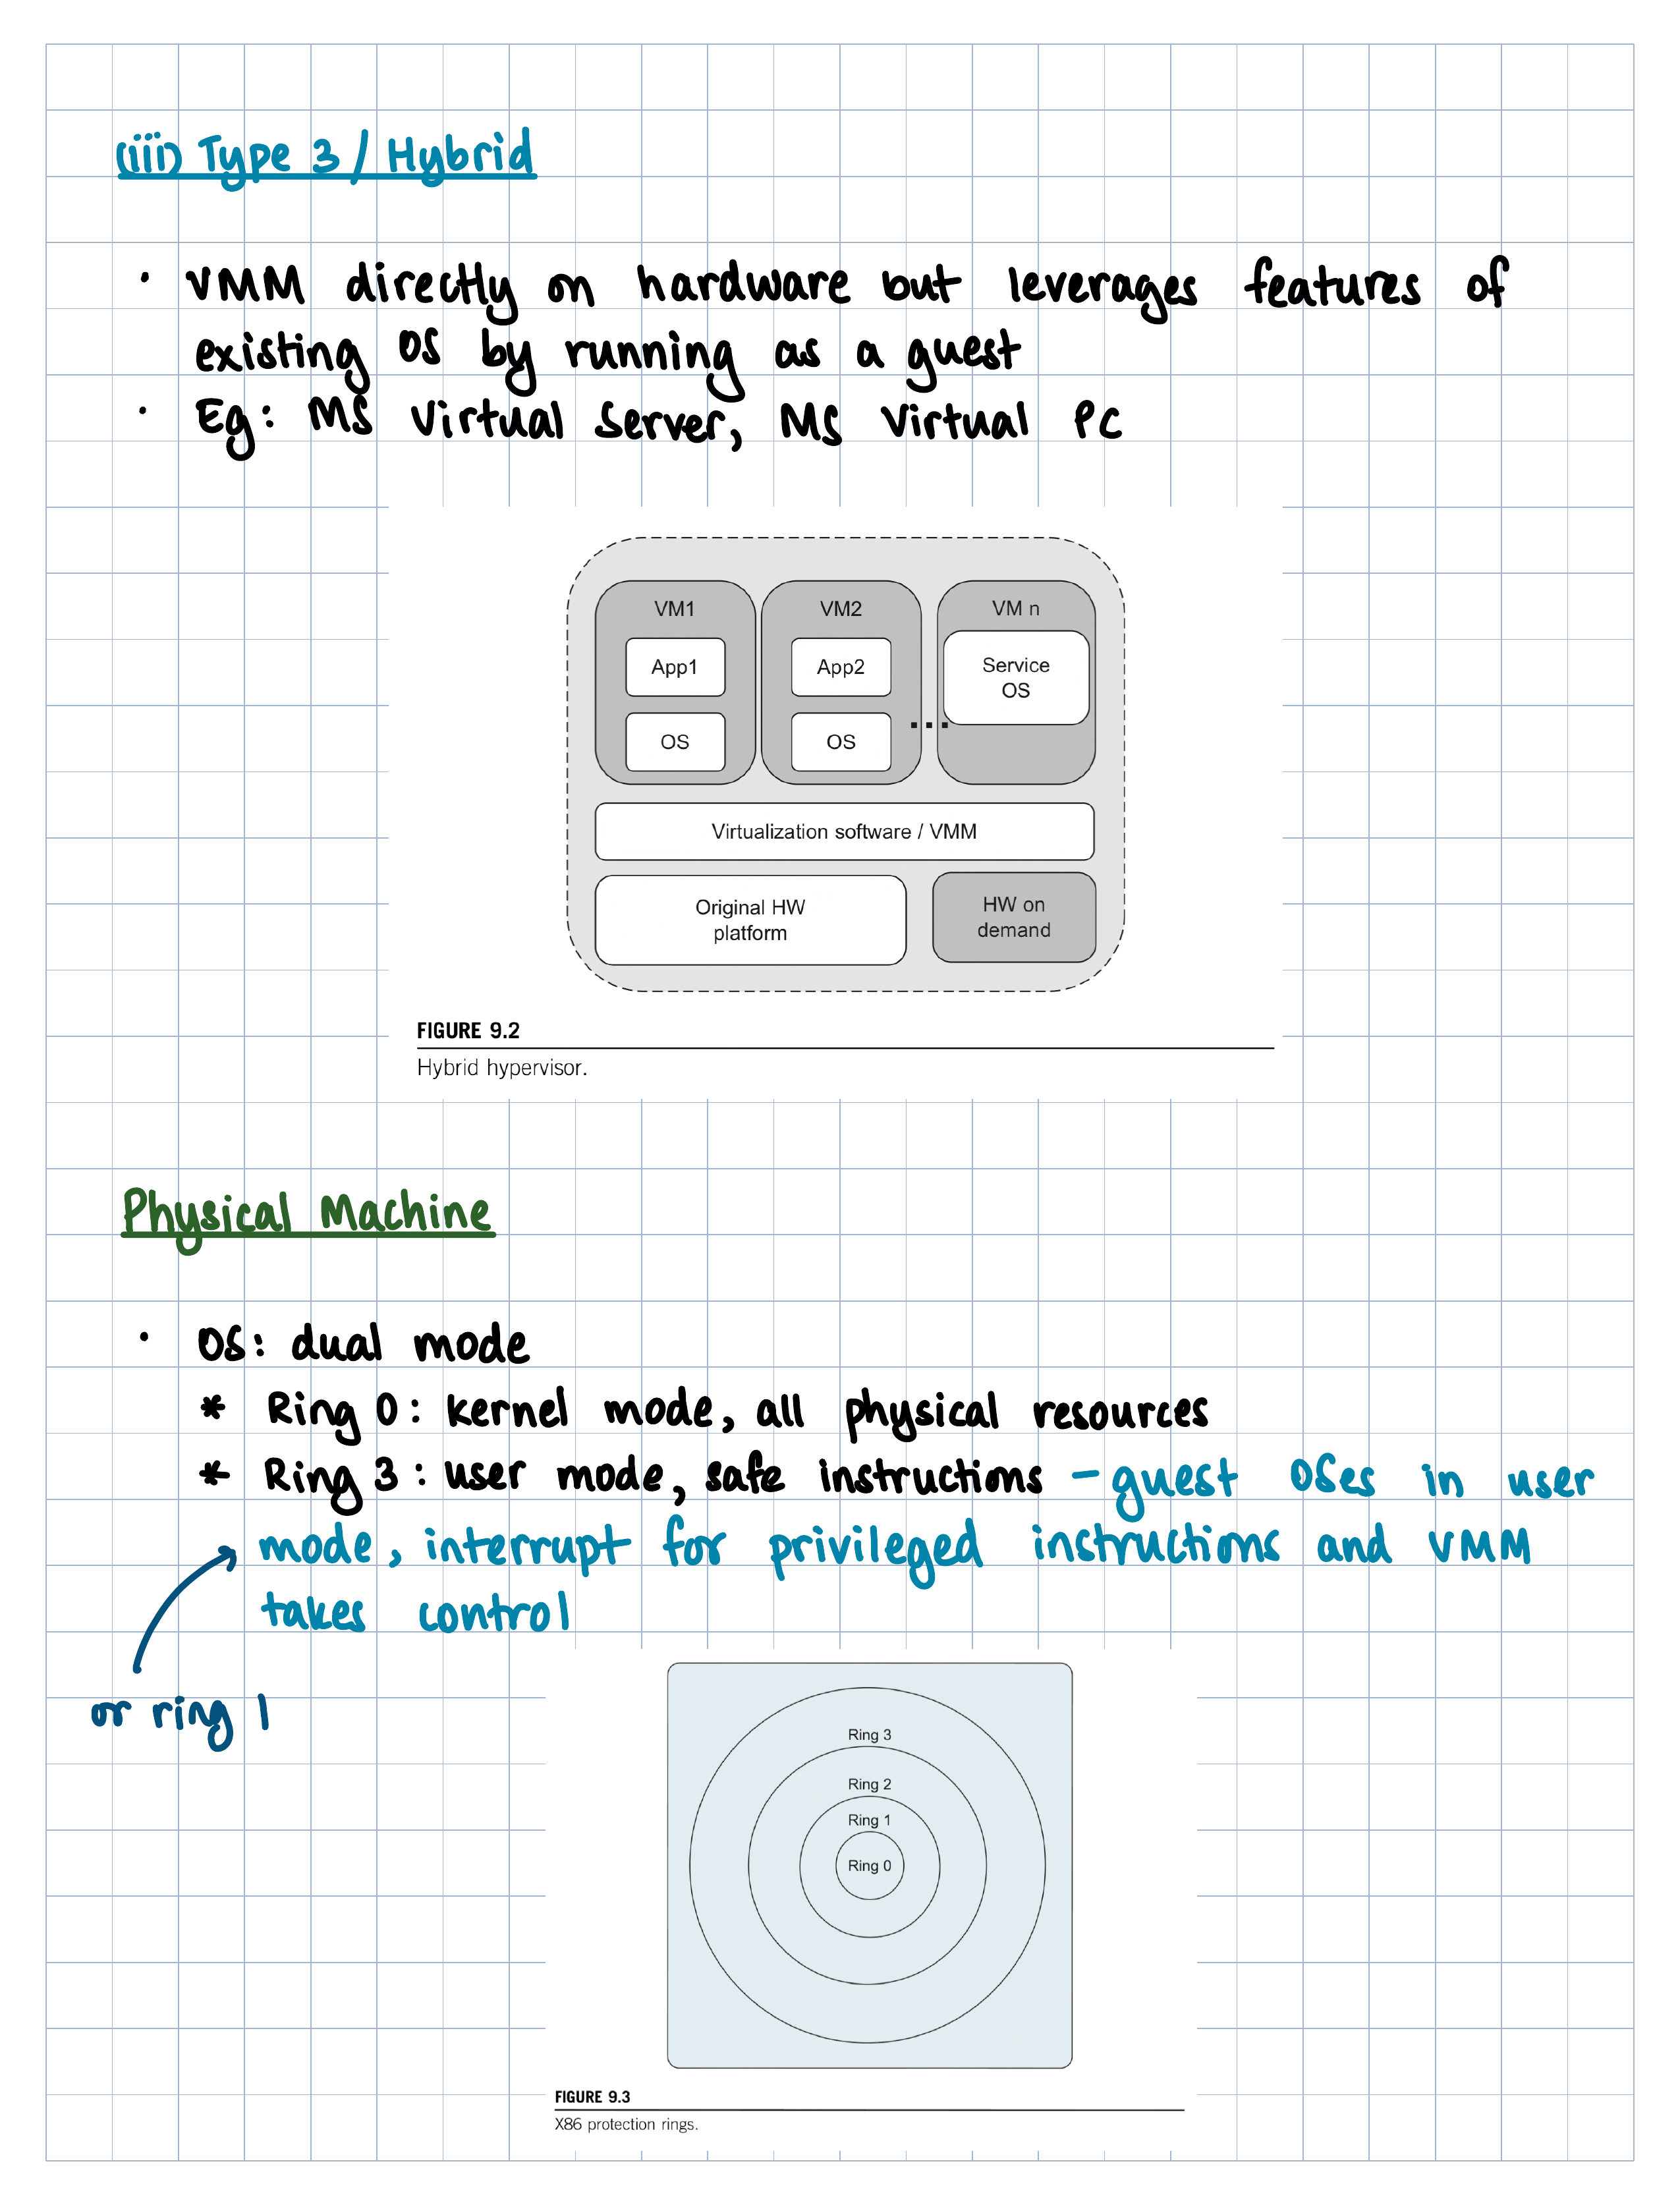 (iii) Type 3 / Hybrid
· VMM directly on hardware but leverages features of
existing OS by running as a guest
· Eg: MS Virtual Server, MS Virtual PC
VM1 VM2 VM n
App1 App2 Service
OS
OS OS ...
Virtualization software / VMM
Original HW
platform
HW on
demand
FIGURE 9.2
Hybrid hypervisor.
Physical Machine
· OS: dual mode
* Ring 0: kernel mode, all physical resources
* Ring 3: user mode, safe instructions - guest OSes in user
mode, interrupt for privileged instructions and VMM
takes control
or ring 1
Ring 3
Ring 2
Ring 1
Ring 0
FIGURE 9.3
X86 protection rings.